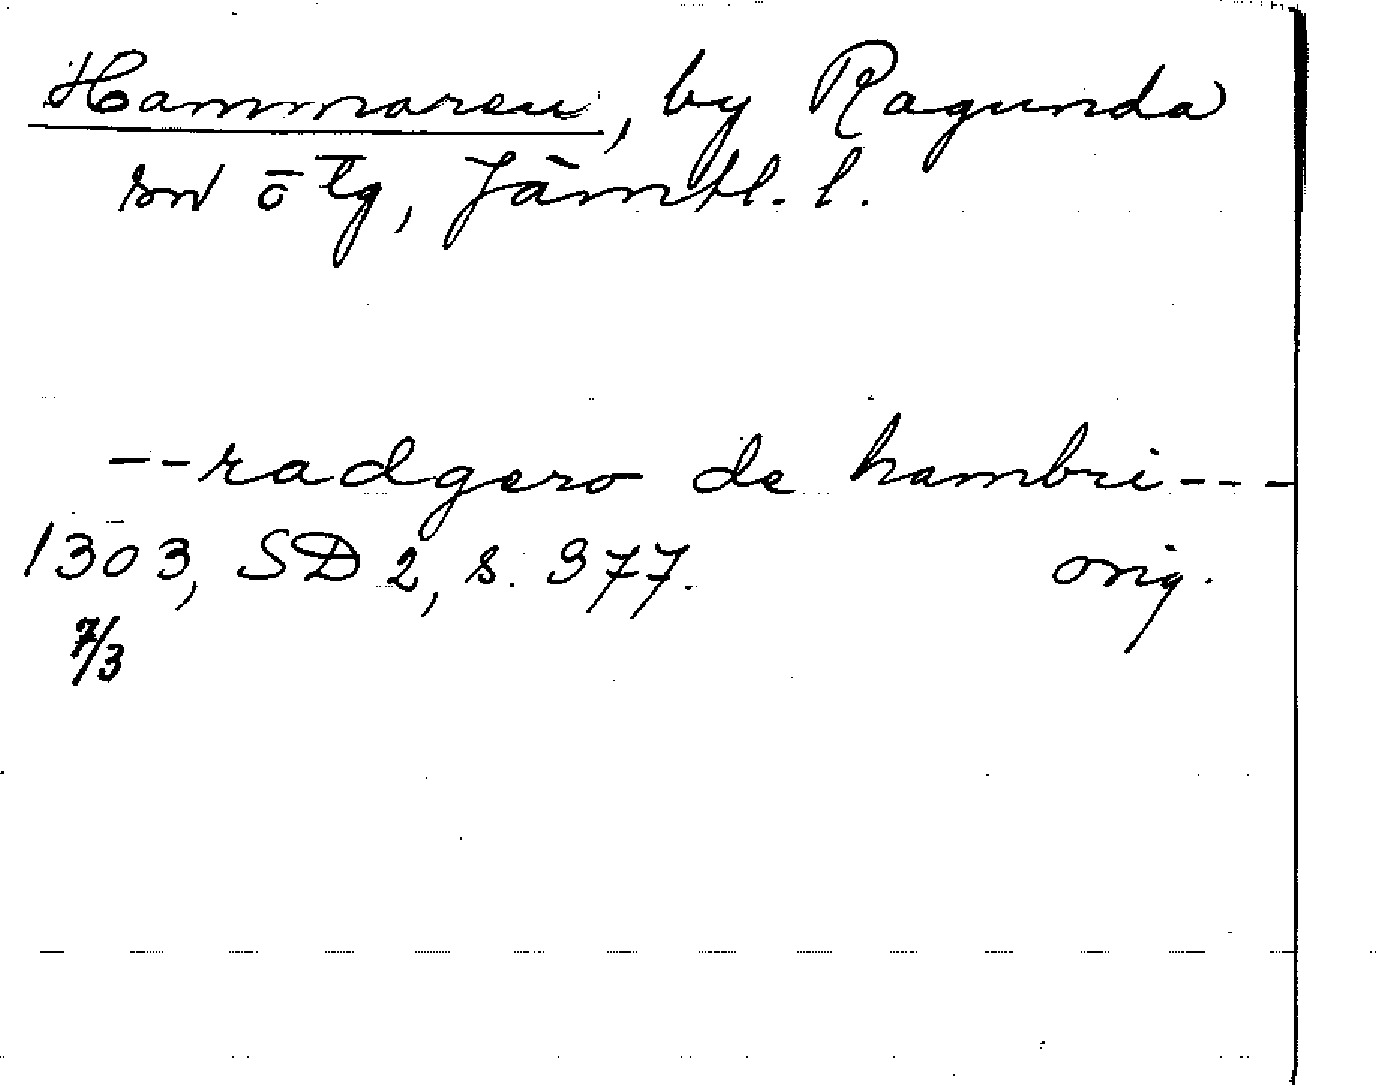 Hammaren, by Ragunda
sn o tlg, Jämtl. l.
--radgero de hambri---
1303, SD 2, s. 377. orig.
7/3